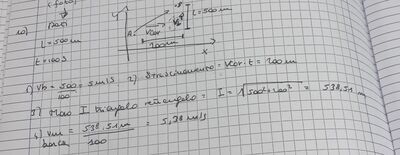 (foto)
10) Dati
l = 500m
t = 100s
y
A
Vcor
l = 500m
200m
x
1) Vb = 500/100 = 5m/s 2) trascinamento = Vcor · t = 200m
3) I triangolo rettangolo = I = √500² + 200² = 538,51m
4) Vm barca = 538,51m/100 = 5,38 m/s